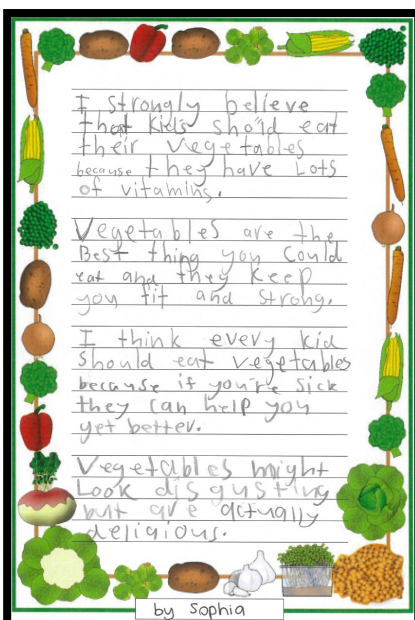 I strongly believe
that kids should eat
their vegetables
because they have Lots
of vitamins.
Vegetables are the
Best thing you could
eat and they keep
you fit and strong.
I think every kid
should eat vegetables
because if you're sick
they can help you
get better.
Vegetables might
Look disgusting
but are actually
deligious.
by Sophia